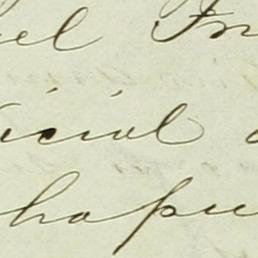 el In
icial
hapu